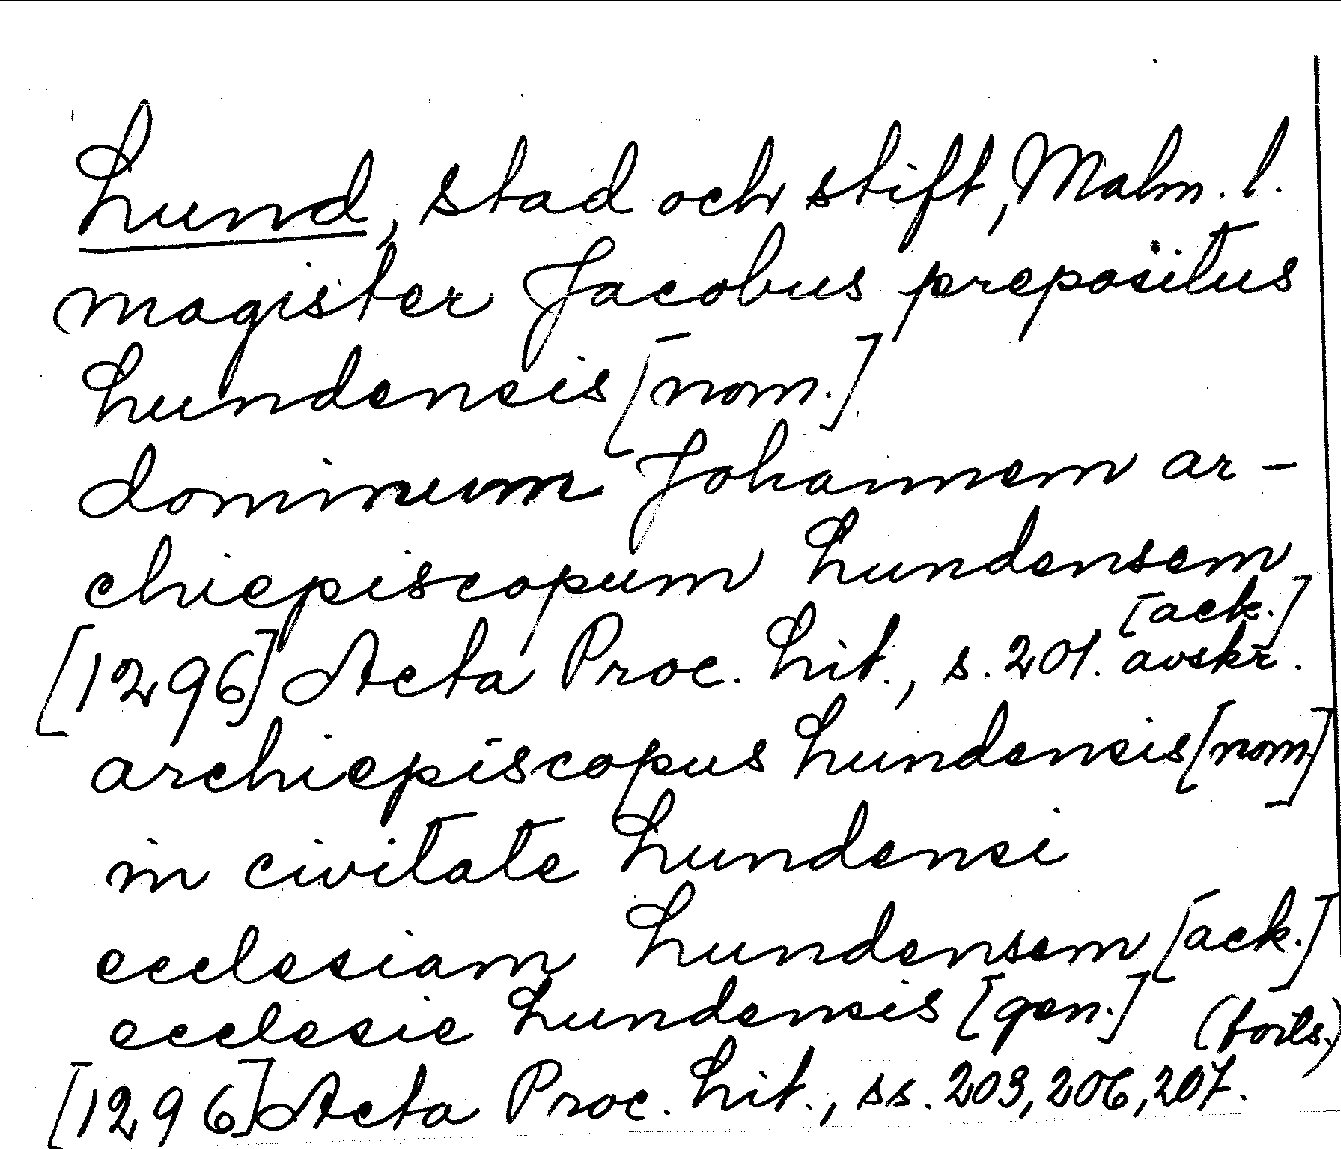 Lund, stad och stift, Malm. l.
magister Jacobus prepositus
Lundensis [nom.]
dominum Johannem ar-
chiepiscopum Lundensem
[ack.]
[1296] Acta Proc. Lit., s. 201. avskr.
archiepiscopus Lundensis [nom]
in civitate Lundensi
ecclesiam Lundensem [ack.]
ecclesie Lundensis [gen.] (forts.)
[1296] Acta Proc. Lit., ss. 203, 206, 207.